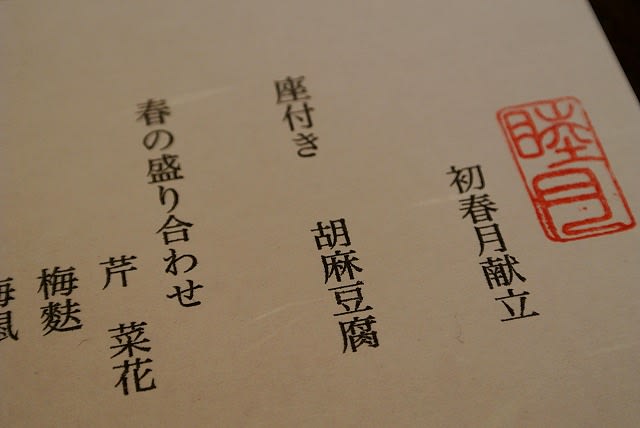 睦月
初春月献立
座付き
胡麻豆腐
春の盛り合わせ
芹 菜花
梅麩
海鼠